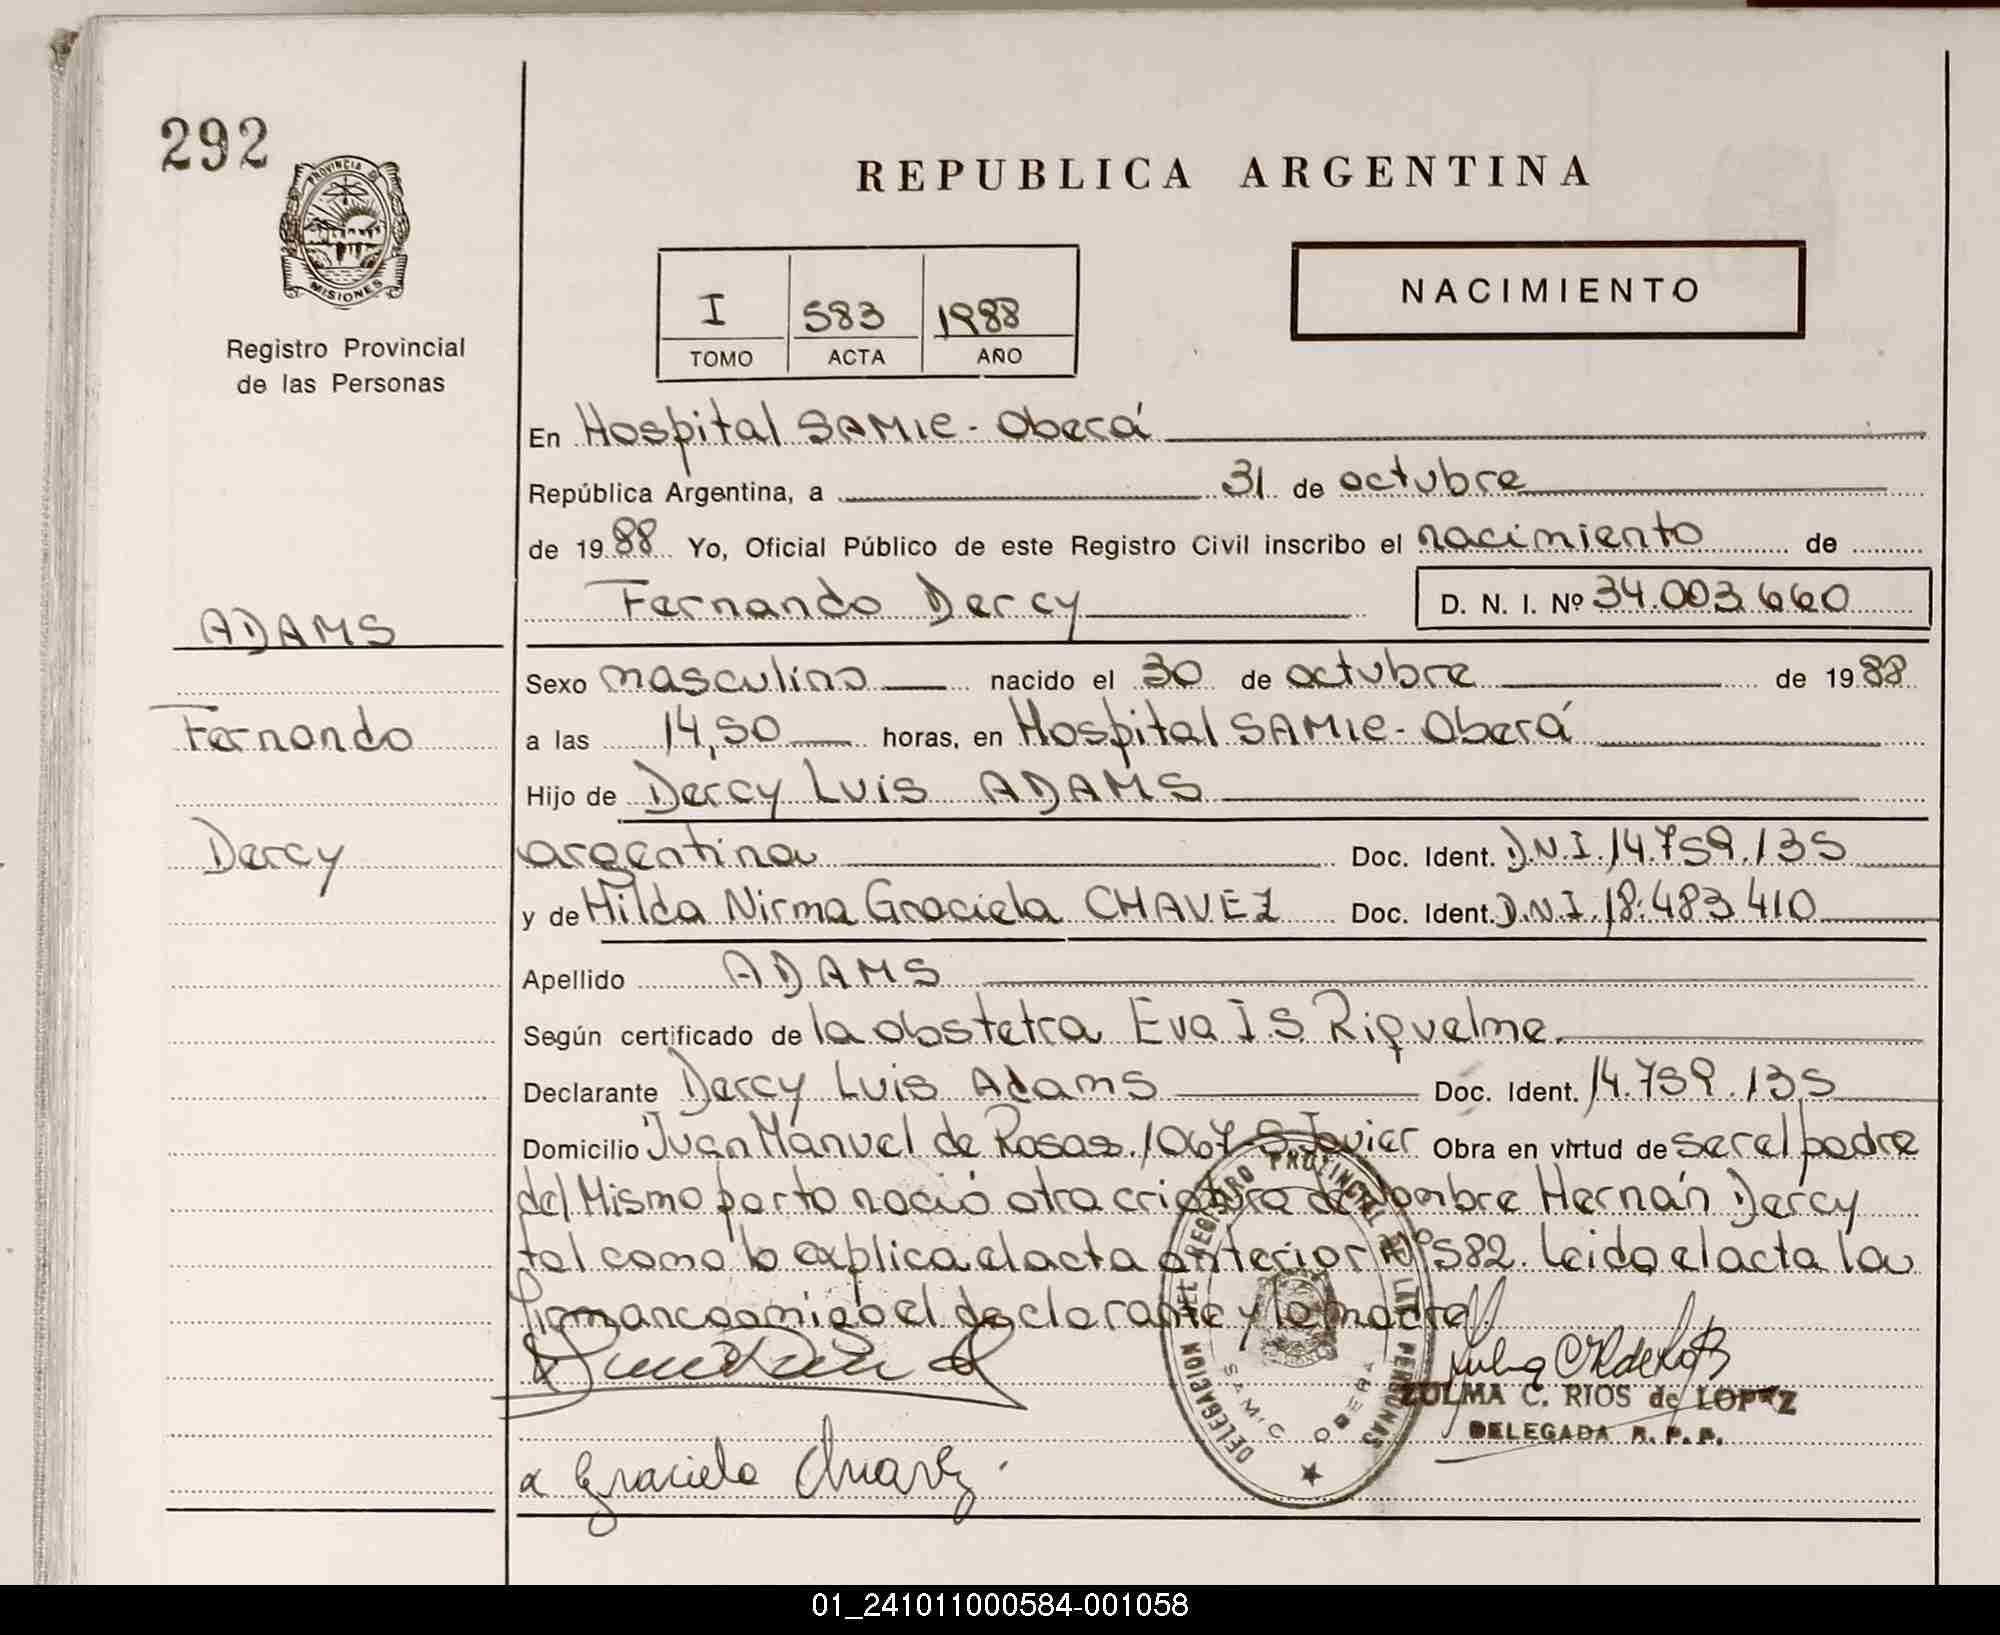 292
PROVINCIA DE
MISIONES
Registro Provincial
de las Personas
REPUBLICA ARGENTINA
NACIMIENTO
I 583 1988
TOMO ACTA AÑO
En Hospital SAMIC - Oberá
República Argentina, a 31 de octubre
de 1988 Yo, Oficial Público de este Registro Civil inscribo el nacimiento de
Fernando Dercy D. N. I. Nº 34.003.660
ADAMS
Fernando
Dercy
Sexo masculino nacido el 30 de octubre de 1988
a las 14,50 horas, en Hospital SAMIC - Oberá
Hijo de Dercy Luis ADAMS
argentina Doc. Ident. D.N.I. 14.759.135
y de Hilda Nirma Graciela CHAVEZ Doc. Ident. D.N.I. 18.483.410
Apellido ADAMS
Según certificado de la obstetra Eva I. S. Riquelme.
Declarante Dercy Luis Adams Doc. Ident. 14.759.135
Domicilio Juan Manuel de Rosas 1067 S. Javier Obra en virtud de ser el padre
del mismo parto nació otra criatura de nombre Hernán Dercy
tal como lo explica el acta anterior Nº 582. Leido el acta la
firman conmigo el declarante y la madre.
DELEGACION DEL REGISTRO PROVINCIAL DE LAS PERSONAS
SAMIC OBERA
ZULMA C. RIOS de LOPEZ
DELEGADA R. P. P.
Graciela Chavez.
01_241011000584-001058